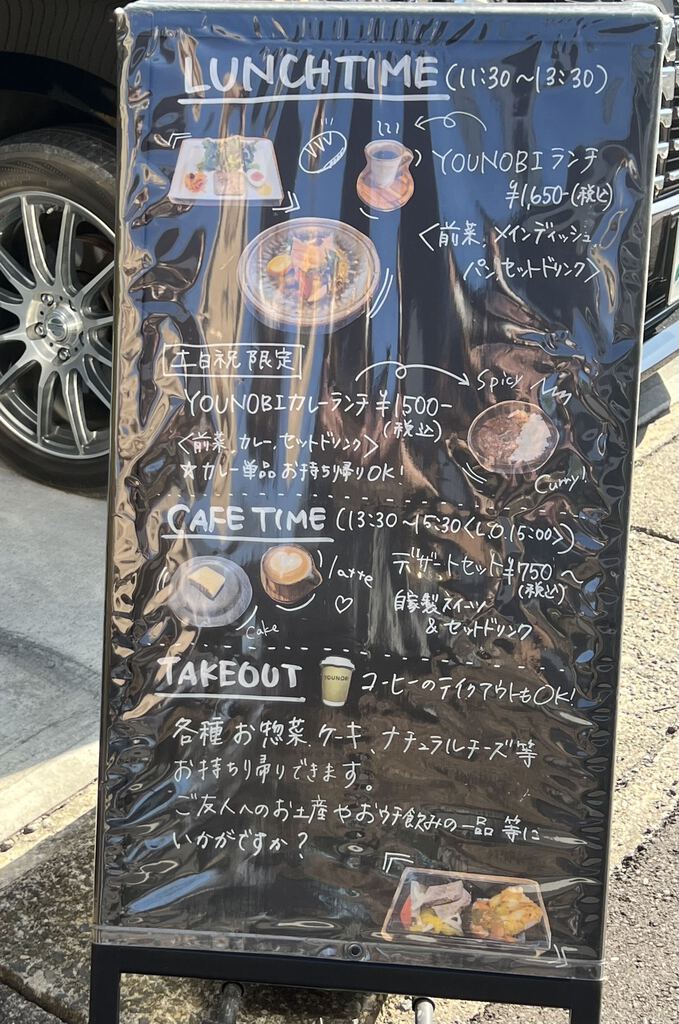 LUNCH TIME (11:30〜13:30)
YOUNOBIランチ
¥1,650-(税込)
<前菜、メインディッシュ、
パン、セットドリンク>
土日祝限定
Spicy
YOUNOBIカレーランチ ¥1500-
(税込)
<前菜、カレー、セットドリンク>
☆カレー単品お持ち帰りOK!
Curry!
CAFE TIME (13:30〜15:30<L.O.15:00>)
latte
デザートセット¥750〜
(税込)
自家製スイーツ
&セットドリンク
Cake
TAKEOUT
YOUNOBI
コーヒーのテイクアウトもOK!
各種お惣菜、ケーキ、ナチュラルチーズ等
お持ちり帰りできます。
ご友人へのお土産やおウチ飲みの一品等に
いかがですか?